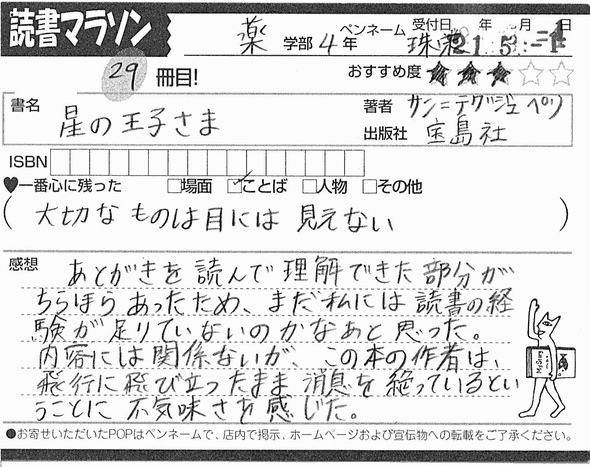 読書マラソン
薬 学部 4 年
ペンネーム
受付日 年 月 日
29 冊目!
おすすめ度 ★★★☆☆
書名 星の王子さま
著者 サン=テグジュペリ
出版社 宝島社
ISBN
♥一番心に残った □場面 ☑ことば □人物 □その他
(大切なものは目には見えない)
感想 あとがきを読んで理解できた部分が
ちらほらあったため、まだ私には読書の経
験が足りていないのかなあと思った。
内容には関係ないが、この本の作者は、
飛行に飛び立ったまま消息を絶っているとい
うことに不気味さを感じた。
●お寄せいただいたPOPはペンネームで、店内で掲示、ホームページおよび宣伝物への転載をご了承ください。